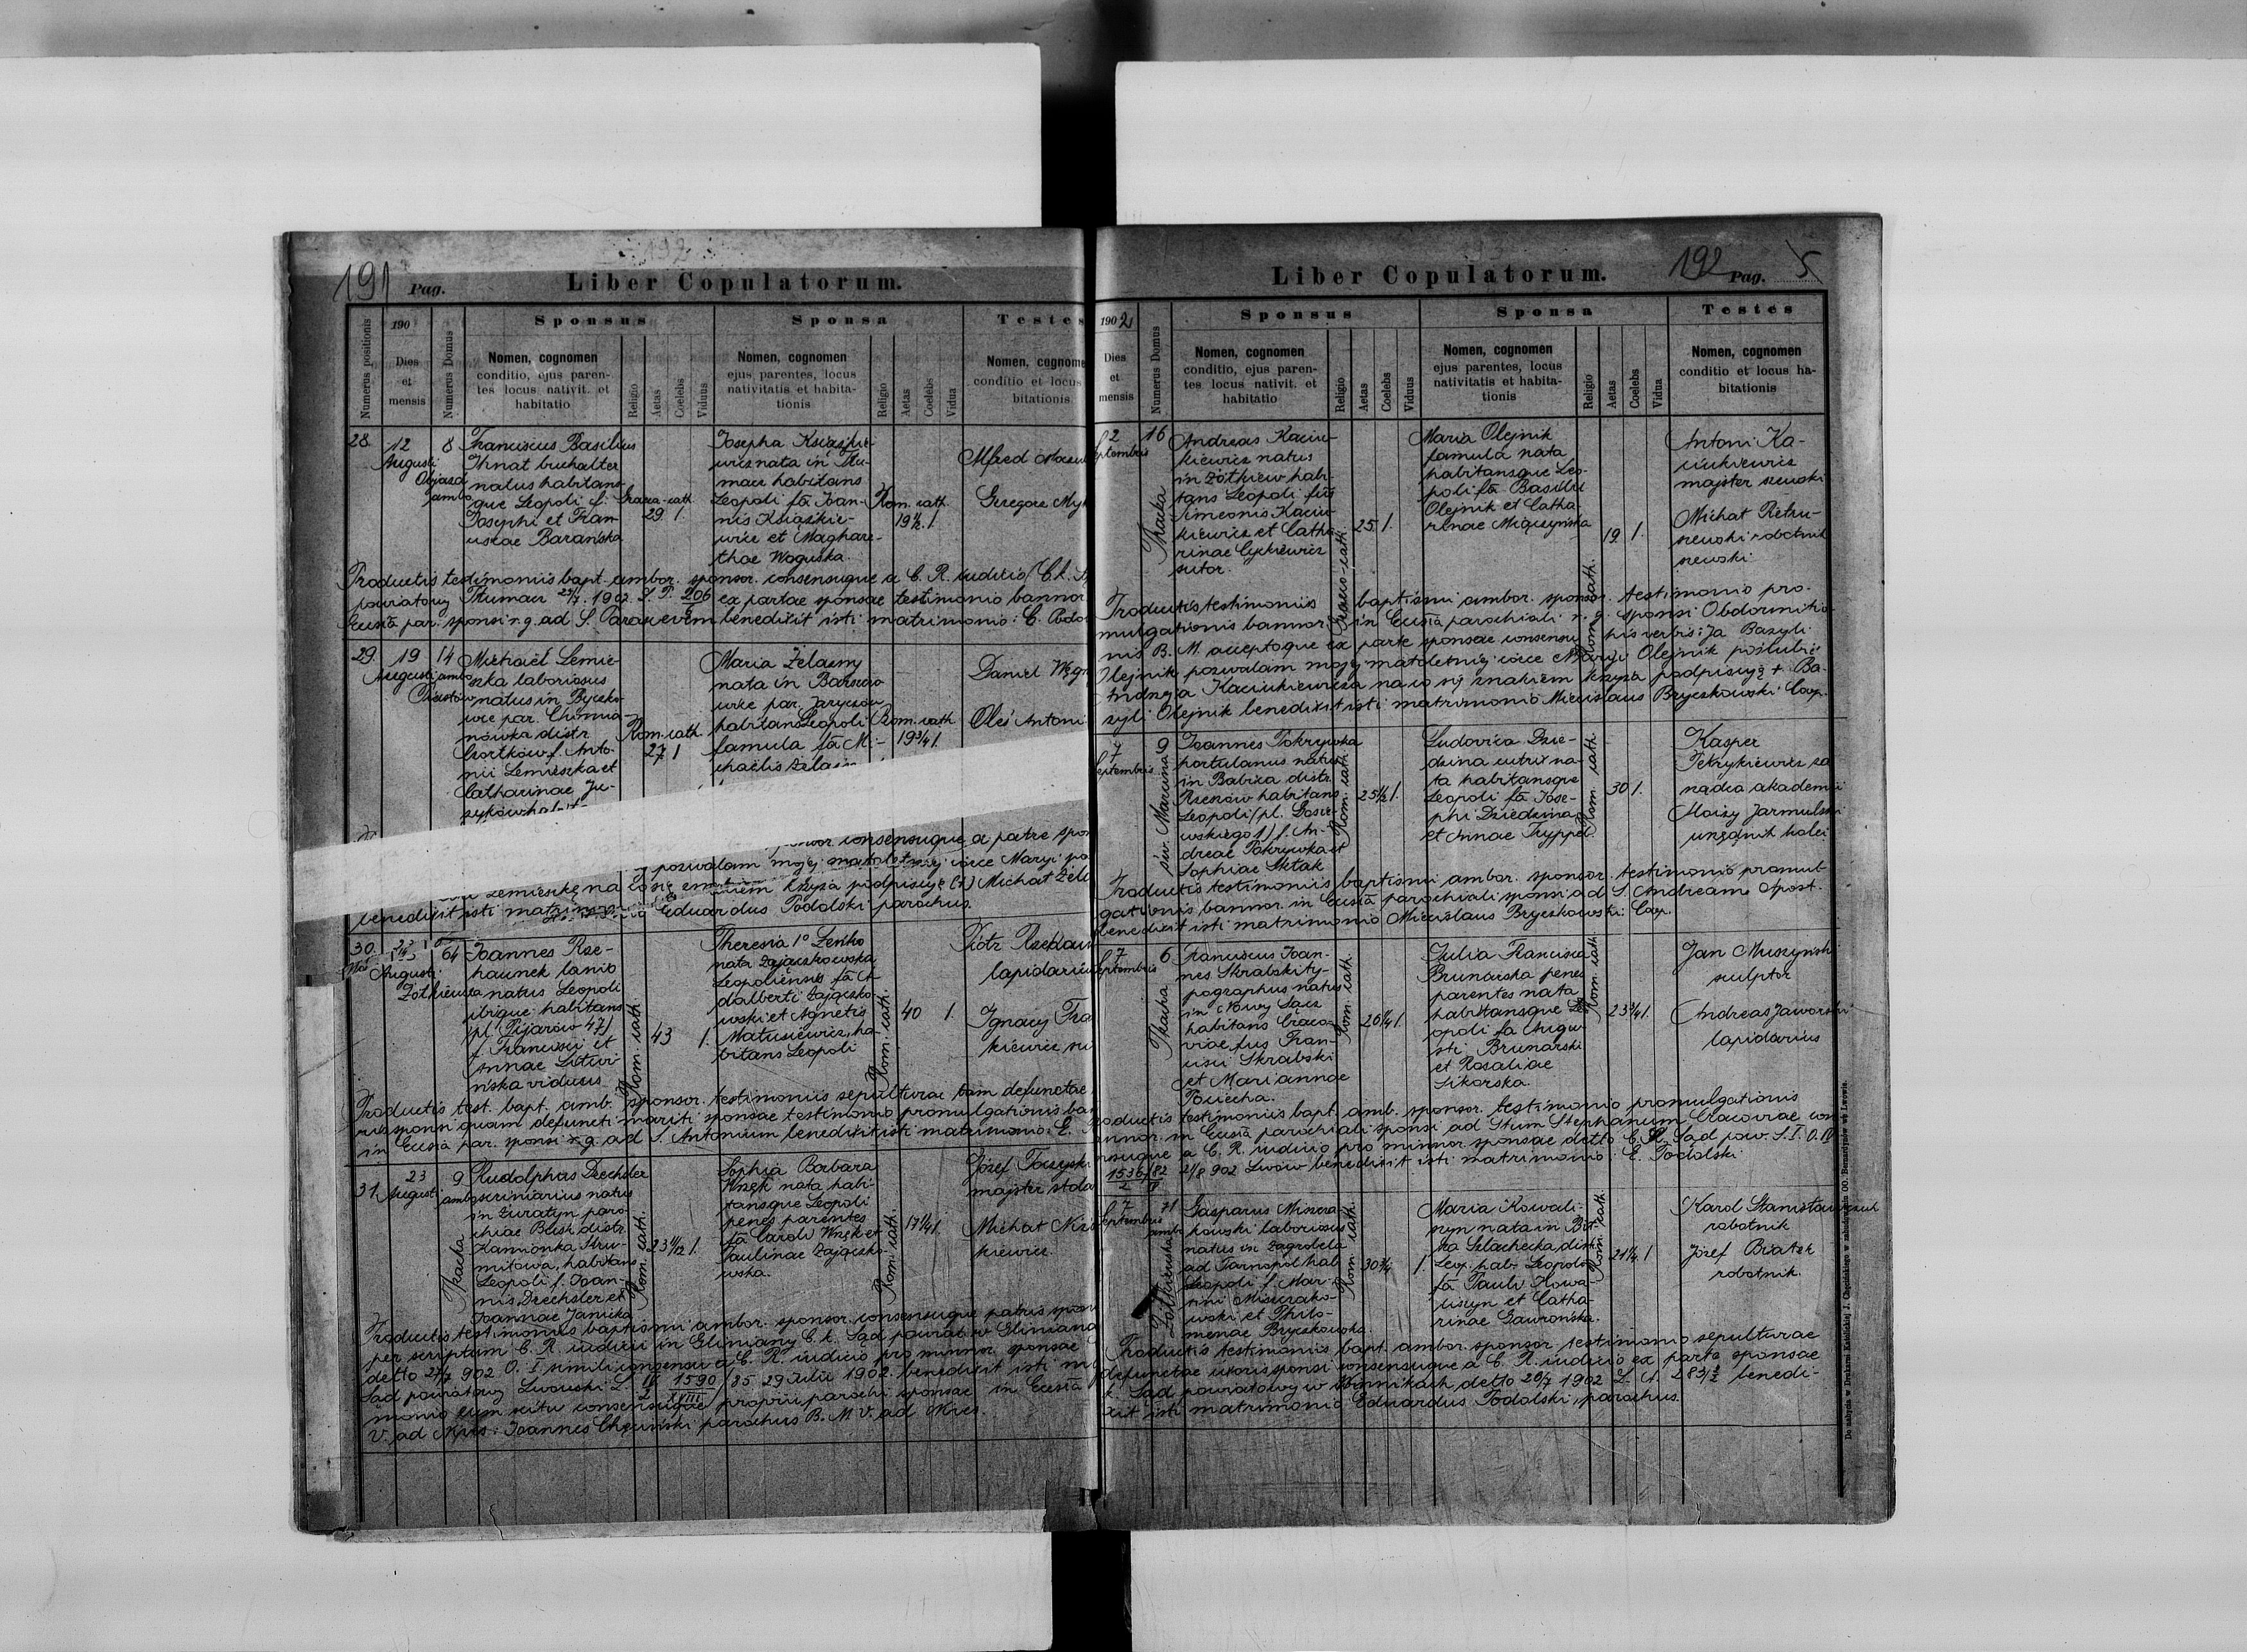 191 Pag. Liber Copulatorum.
Numerus positionis
190
Dies et mensis
Numerus Domus
Sponsus
Nomen, cognomen
conditio, ejus paren-
tes locus nativit. et
habitatio
Religio
Aetas
Coelebs
Viduus
Sponsa
Nomen, cognomen
ejus parentes, locus
nativitatis et habita-
tionis
Religio
Aetas
Coelebs
Vidua
Testes
Nomen, cognome
conditio et locus
bitationis
28.
12
Augusti
8
ambo
Franciscus Basilius
Ihnat buchalter
natus habitans-
que Leopoli f.
Josephi et Fran-
ciscae Barańska
Graeco-cath
29 1.
Josepha Książkie-
wicz nata in Tłu-
macz habitans
Leopoli fa Joan-
nis Książkie-
wicz et Marghare-
thae Woguska.
Rom. cath
19½. 1.
Alfred
Grzegorz
Productis testimoniis bapt. ambor. sponsor. consensuque a C. R. iudicio (C. k.
powiatowy Tłumacz 29/7. 1902. ex partae sponsae testimonio bannor
Ecclesia par. sponsi r. g. ad S. Parascevem benedixit isti matrimonio: E. Podo
29.
19
Augusti
14
ambo
Michaël Lemie-
szka laboriosus
natus in Byczko-
wce par. Chomia-
kówka distr
Czortków f. Anto-
nii Lemieszka et
Catharinae Ju-
Rom. cath
27 1
Maria Żelazny
nata in Barszczo
wice par. Jaryczów
habitans Leopoli
famula fa Mi-
chaëlis
Rom. cath
19¾ 1.
Daniel
Oleś Antoni
consensuque a patre spon
pozwalam mojej małoletniej córce Maryi po
Lemieszkę na co się znakiem krzyża podpisuję (+) Michał
benedixit isti matrimonio Eduardus Podolski parochus.
30.
Augusti
64
Żółkiewska
Joannes Rze-
haunek lanio
natus Leopoli
ibique habitans
(pl. Pijarów 47)
f. Francisci et
Annae Litwi-
ńska viduus
Rom. cath.
43 1.
Theresia 1° Leśko
nata Zajączkowska
Leopoliensis fa A-
dalberti Zajączko
wski et Agnetis
Matusiewicz, ha-
bitans Leopoli
Rom. cath.
40 1.
Piotr
lapidarius
Ignacy
kiewicz
Productis test. bapt. amb. sponsor. testimoniis sepulturae tam defunctae
sponsi quam defuncti mariti sponsae testimonio promulgationis ban
in Ecclesia par. sponsi r. g. ad S. Antonium benedixit isti matrimonio: E.
31.
23
Augusti
9
ambo
Rudolphus Drechsler
scriniarius natus
in Żuratyn paro-
chiae Busk distr.
Kamionka Stru-
miłowa, habitans
Leopoli f. Joan-
nis Drechsler et
Joannae Janicka
Rom. cath.
23 11/12 1.
Sophia Barbara
Wnęk nata habi-
tansque Leopoli
penes parentes
fa Caroli Wnęk et
Paulinae Zajączko-
wska.
Rom. cath.
17¼ 1.
Józef
majster stola
Michał
kiewicz.
Productis testimoniis baptismi ambor. sponsor. consensuque patris spon
per scriptum C. R. iudicii in Gliniany C. k. Sąd powiat. w Gliniana
detto 902 simili consensu a C. R. iudicio pro minor. sponsae
Sąd powiatowy Lwowski 1590/85 29 Julii 1902. benedixit isti
monio cum scitu consensuque proprii parochi sponsae in Ecclesia
V. ad Nives: Joannes Chęciński parochus B. M. V. ad Nives.
Liber Copulatorum. 192 Pag. 5
1902
Dies et mensis
Numerus Domus
Sponsus
Nomen, cognomen
conditio, ejus paren-
tes locus nativit. et
habitatio
Religio
Aetas
Coelebs
Viduus
Sponsa
Nomen, cognomen
ejus parentes, locus
nativitatis et habita-
tionis
Religio
Aetas
Coelebs
Vidua
Testes
Nomen, cognomen
conditio et locus ha-
bitationis
2
Septembris
16
Andreas Kaciu-
kiewicz natus
in Żółkiew habi-
tans Leopoli fus
Simeonis Kaciu-
kiewicz et Catha
rinae Cyckiewicz
sutor.
Graeco-cath.
25 1.
Maria Olejnik
famula nata
habitansque Leo-
poli fa Basilii
Olejnik et Catha
rinae Miączyńska
Rom. cath.
19. 1.
Antoni Ka-
ciukiewicz
majster szewski
Michał Pietru-
szewski robotnik
szewski
Productis testimoniis baptismi ambor. sponsor. testimonio pro-
mulgationis bannor. in Ecclesia parochiali r. g. sponsi Obdormitio-
nis B. M. acceptoque ex parte sponsae consensu his verbis: Ja Bazyli
Olejnik pozwalam mojej małoletniej córce Maryi Olejnik poślubić
Andrzeja Kaciukiewicza na co się znakiem krzyża podpisuję + Ba-
zyli Olejnik benedixit isti matrimonio Miecislaus Bryczkowski Coop.
7
Septembris
9
św. Marcina
Joannes Pokrywka
hortulanus natus
in Babica distr.
Rzeszów habitans
Leopoli (pl. Gosie
wskiego 1) f. An-
dreae Pokrywka et
Sophiae
Rom. cath.
25½ 1.
Ludovica Dzie-
dzina nutrix na-
ta habitansque
Leopoli fa Jose-
phi Dziedzina
et Annae Tryppel
Rom. cath
30 1.
Kasper
Pekrykiewicz za
rządca akademii
Alojzy Jarmulski
urzędnik kolei
Productis testimoniis baptismi ambor. sponsor. testimonio promul-
gationis bannor. in Ecclesia parochiali sponsi ad S. Andream Apost.
benedixit isti matrimonio Miecislaus Bryczkowski Coop.
7
Septembris
6
Franciscus Joan-
nes Skrabski ty-
pographus natus
in Nowy Sącz
habitans Craco-
viae fus Fran-
cisci Skrabski
et Mariannae
Pociecha.
Rom. cath.
26¼ 1.
Julia Francisca
Brunarska penes
parentes nata
habitansque Le
opoli fa Augu-
sti Brunarski
et Rosaliae
Sikorska.
Rom. cath
23¾ 1.
Jan Muszyński
sculptor
Andreas Jaworski
lapidarius
Productis testimoniis bapt. amb. sponsor. testimonio promulgationis
bannor. in Ecclesia parochiali sponsi ad Stum Stephanum Cracoviae con
sensuque a C. R. iudicio pro minor. sponsae detto C. R. Sąd pow. S. I. O. IV
1536/82 21/8 902 Lwów benedixit isti matrimonio: E. Podolski
7
Septembris
71
ambo
Żółkiewska
Gasparus Misiura-
kowski laboriosus
natus in Zagrobela
ad Tarnopol hab.
Leopoli f. Mar-
tini Misiurako-
wski et Philo-
menae Bryczkowska.
Rom. cath.
30¾ 1.
Maria Kowali-
szyn nata in Bił-
ka Szlachecka, distr.
Leop. hab. Leopoli
fa Pauli Kowa-
liszyn et Catha-
rinae Gawrońska.
Rom. cath.
21¼ 1
Karol
robotnik
Józef Białek
robotnik.
Productis testimoniis bapt. ambor. sponsor. testimonio sepulturae
defunctae uxoris sponsi consensuque a C. R. iudicio ex parte sponsae
k. Sąd powiatowy w Winnikach detto 26/7 1902 283/2 benedi-
xit isti matrimonio Eduardus Podolski, parochus.
Do nabycia w Drukarni Katolickiej J. Chęcińskiego w zabudowaniu OO. Bernardynów we Lwowie.